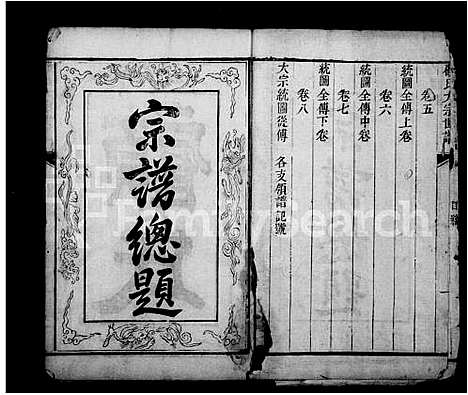 卷五
統圖全傳上卷
卷六
統圖全傳中卷
卷七
統圖全傳下卷
卷八
大宗統圖從傳 各支領譜記號
宗譜總題
FamilySearch